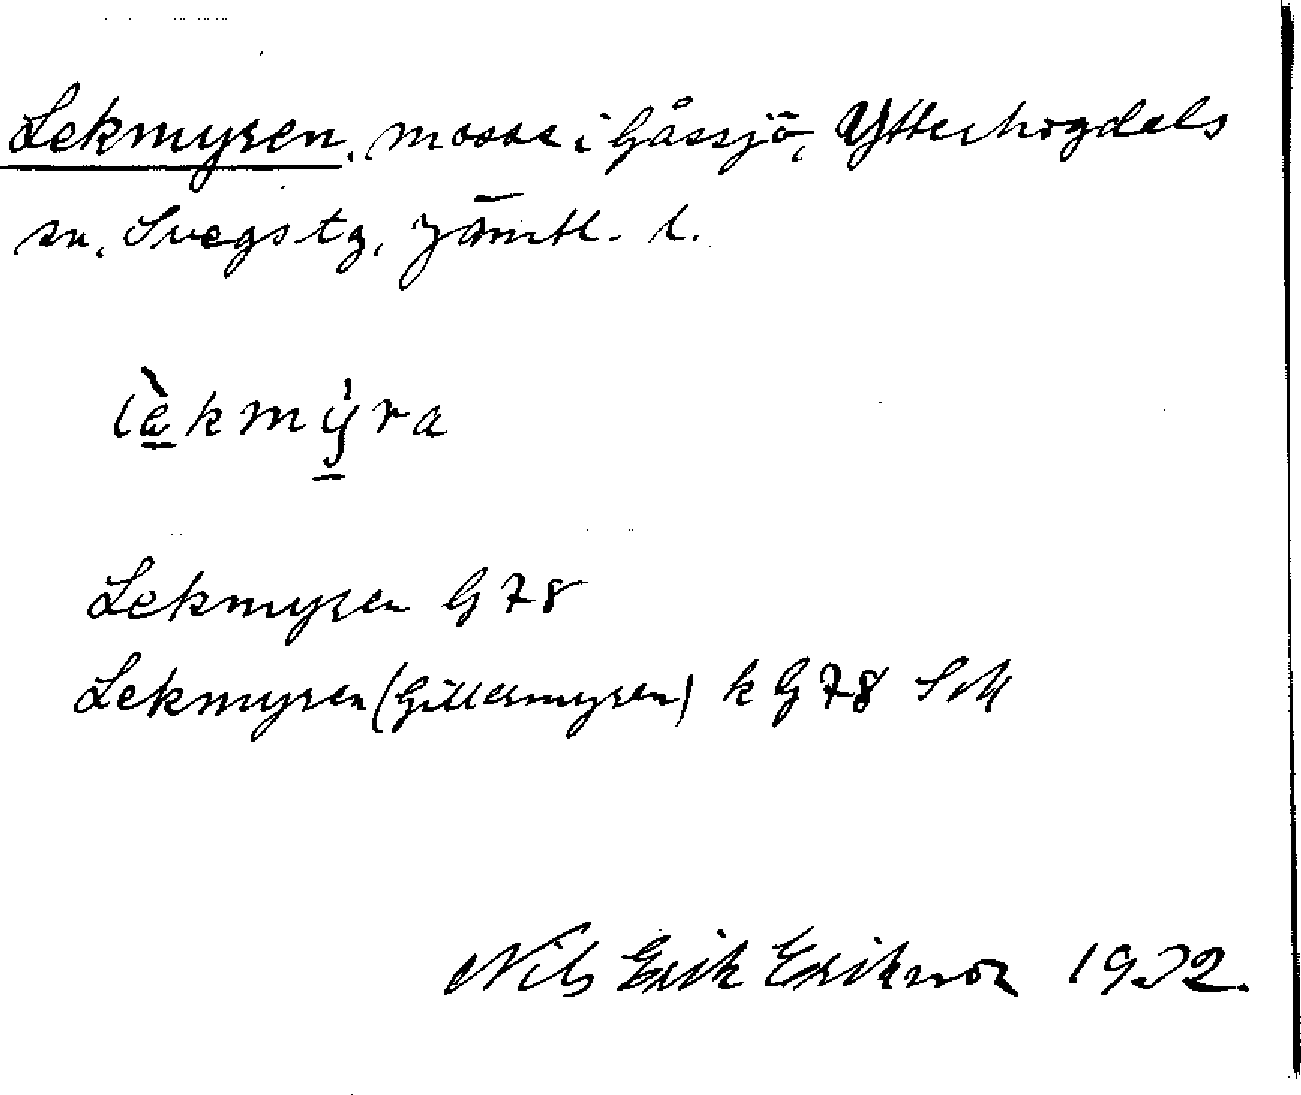 Lekmyren, mosse i Gåssjö, Ytterhogdals
sn, Svegs tg, Jämtl. l.
lèkmýra
Lekmyren G 78
Lekmyren (Gillermyren) k G 78 SM
Nils Erik Erikson 1932.